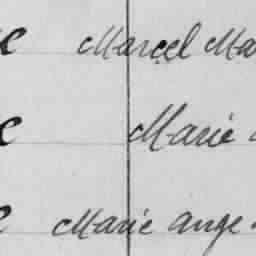 Marcel Ma
Marie
Marie Ange